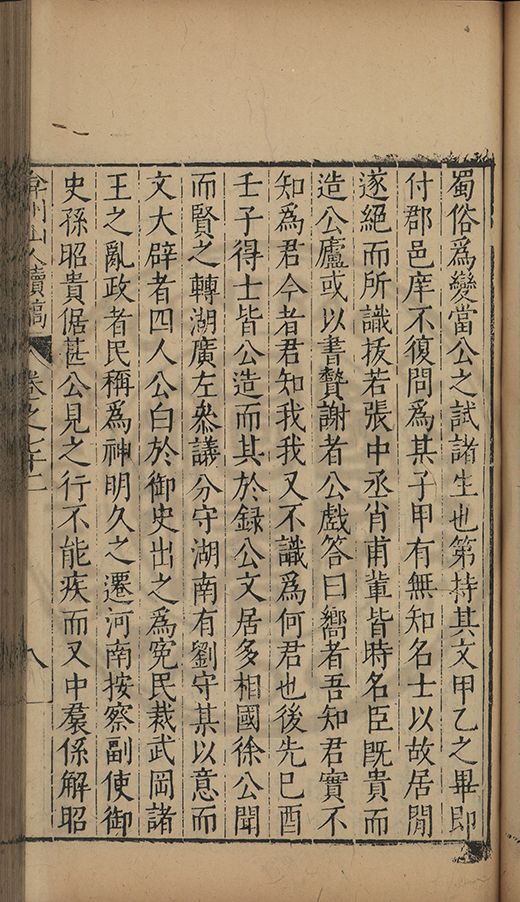 蜀俗為變當公之試諸生也第持其文甲乙之畢即
付郡邑庠不復問為某子甲有無知名士以故居閒
遂絕而所識拔若張中丞肖甫輩皆時名臣旣貴而
造公廬或以書贄謝者公戲答曰嚮者吾知君實不
知為君今者君知我我又不識為何君也後先巳酉
壬子得士皆公造而其於録公文居多相國徐公聞
而賢之轉湖廣左叅議分守湖南有劉守某以意而
文大辟者四人公白於御史出之為寃民裁武岡諸
王之亂政者民稱為神明久之遷河南按察副使御
史孫昭貴倨甚公見之行不能疾而又中羣係解昭
弇州山人續稿 卷之七十二 八